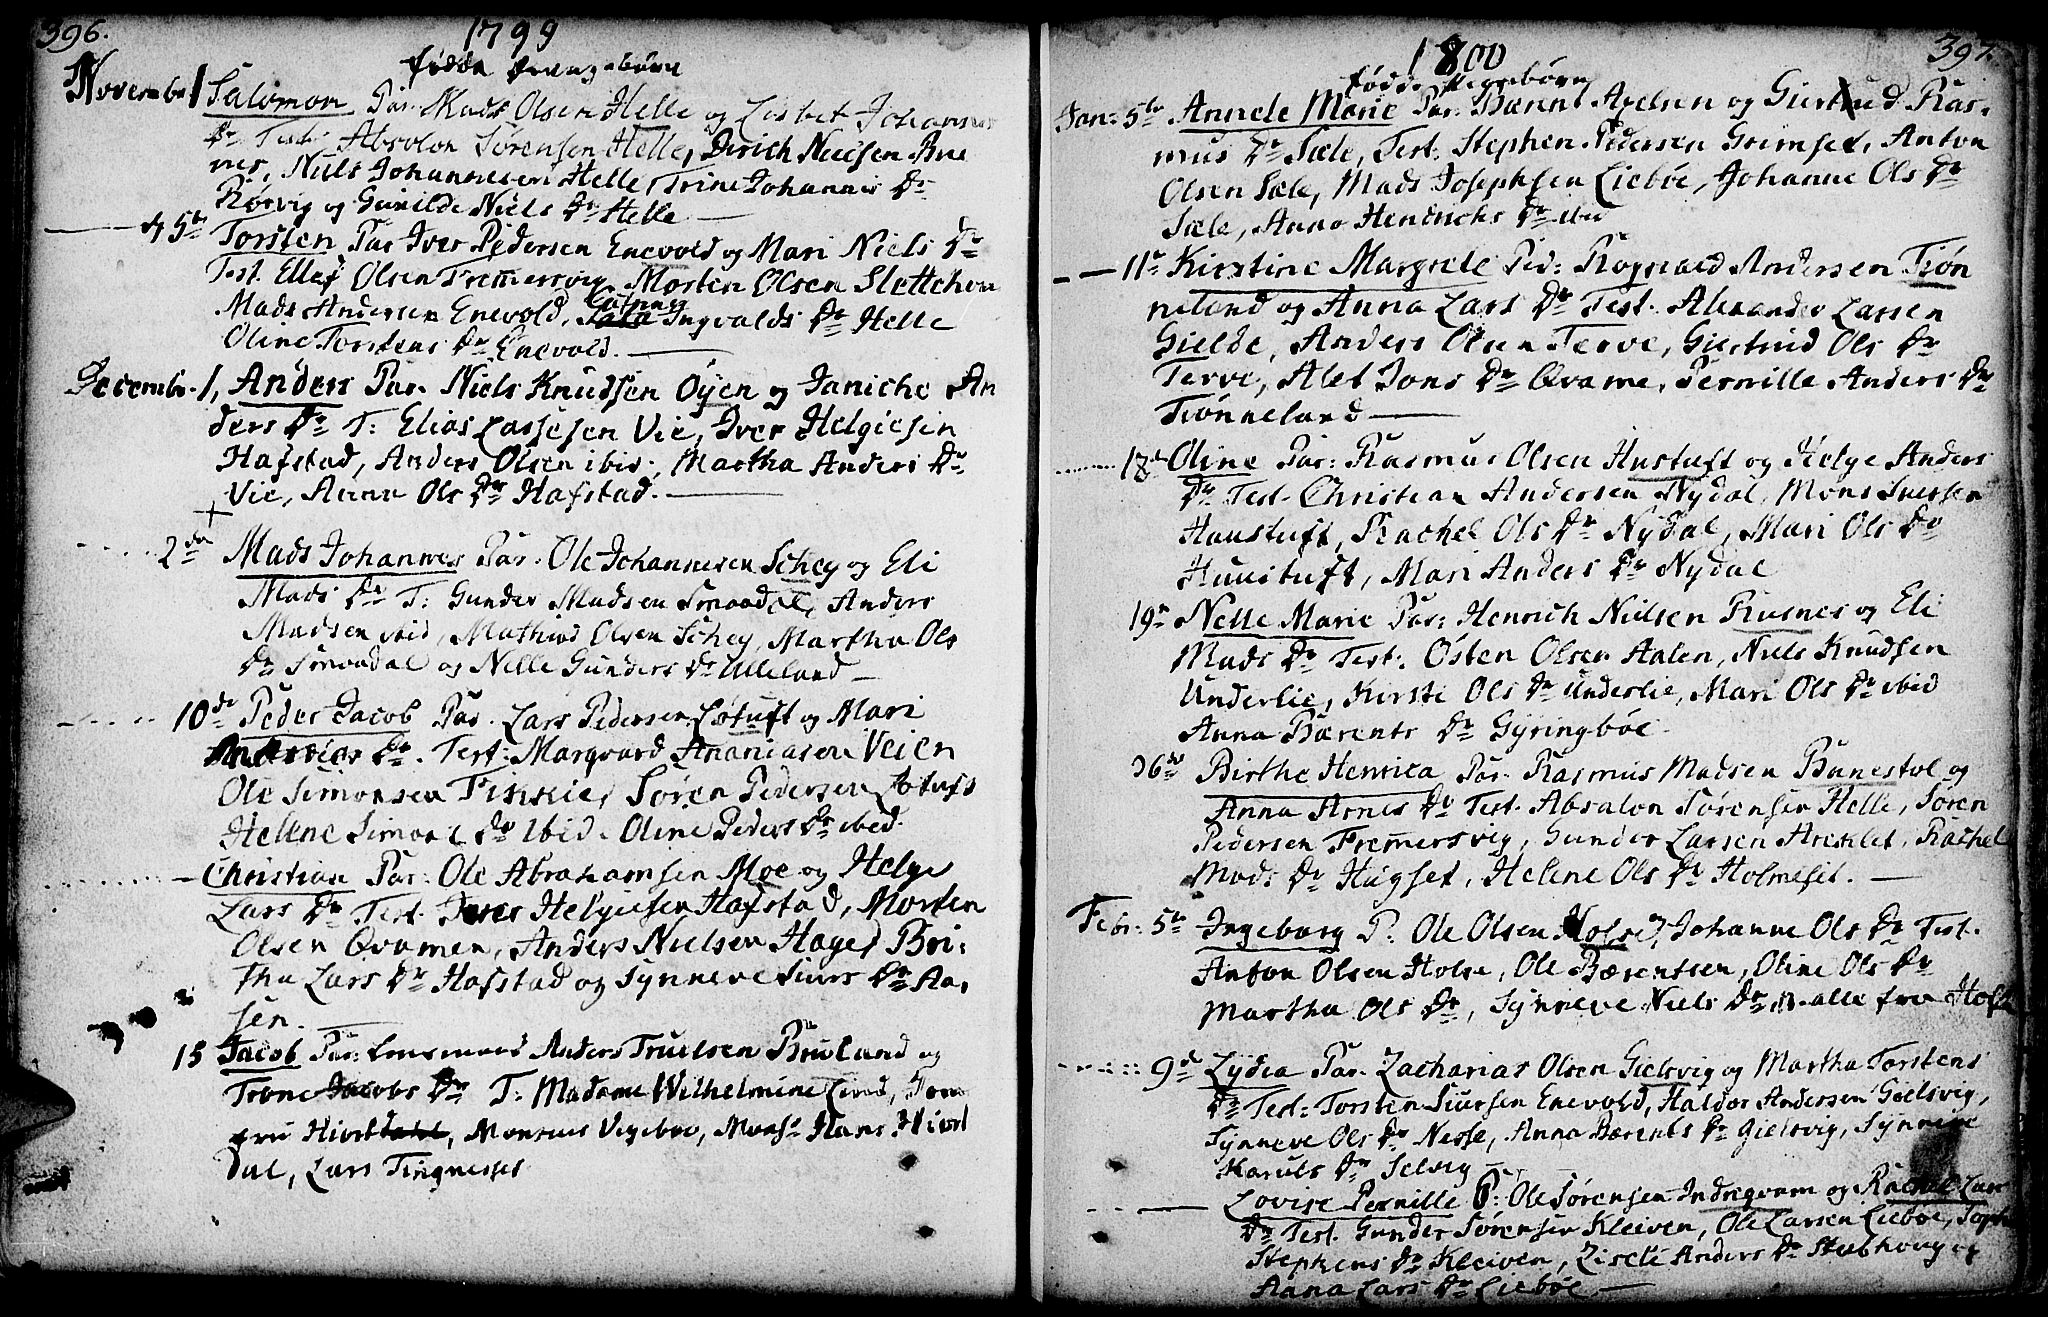 396.
1799
fødde Drengebørn
November 1 Salomon Par. Mads Olsen Helle og Lisbet Johannes
Dr Test. Absolon Sørensen Helle, Dirich Nielsen Bue
nes, Niels Johannesen Helle, Trine Johannis Dr
Rørvig og Gunilde Niels Dr Helle
Torsten Par Iver Pedersen Enevold og Mari Niels Dr
Test. Ellef Olsen Fremersvig, Morten Olsen Slettehou
Mads Andersen Enevold, Ingvalds Dr Helle
Oline Torstens Dr Enevold.
Decembr. 1, Anders Par. Niels Knudsen Øyen og Janiche An
ders Dr T: Elias Lassesen Vie, Iver Helgiesen
Hafstad, Anders Olsen ibid, Martha Anders Dr
Vie, Anna Ols Dr Hafstad.
2den Mads Johannes Par. Ole Johannesen Schey og Eli
Mads Dr T: Gunder Madsen Smaadal, Anders
Madsen ibid, Mathias Olsen Schey, Martha Ols
Dr Smaadal og Nille Gunders Dr Ulleland
10de Peder Jacob Par. Lars Pedersen Løtuft og Mari
Dr. Test: Marqvard Ananiasen Veien
Ole Simonsen Søren Pedersen Løtuft
Helene Simons Dr ibid. Oline Peders Dr ibid.
Christian Par. Ole Abrahamsen Moe og Helge
Lars Dr Test. Iver Helgiesen Hafstad, Morten
Olsen Qvamen, Anders Nielsen Hage, Bri-
tha Lars Dr Hafstad og Synneve Siurs Dr Aa-
sen.
15 Jacob Par: Anders Truelsen Bruland og
Trone Jacobs Dr T: Madame Wilhelmine Lind, Jom
fru Hirsch, Monsieur Vegeboe, Mons. Hans Hiort
dal, Lars Tingnesset

397.
1800
fødde Pigebørn
Jan: 5te Annele Marie Par: Bærent Axelsen og Giertrud Ras-
mus Dr Sæle, Test: Stephen Pedersen Grimset, Anton
Olsen Sæle, Mads Josephsen Liebøe, Johanne Ols Dr
Sæle, Anna Hendrichs Dr ibid
11te Kirstine Margrete Par: Rognald Andersen Trøn
neland og Anna Lars Dr Test. Alexander Larsen
Gielde, Anders Olsen Terve, Giertrud Ols Dr
Terve, Alet Jons Dr Qvame, Pernille Anders Dr
Trønneland
18de Oline Par: Rasmus Olsen Hustuft og Helge Anders
Dr Test. Christian Andersen Nydal, Mons Iversen
Haustuft, Rachel Ols Dr Nydal, Mari Ols Dr
Huustuft, Mari Anders Dr Nydal
19de Nelle Marie Par: Henrich Nielsen Rusnes og Eli
Mads Dr Test: Østen Olsen Aalen, Niels Knudsen
Underlie, Kirsti Ols Dr Underlie, Mari Ols Dr ibid
Anna Bærents Dr Gyringbøe
26de Birthe Henrica Par: Rasmus Madsen Bunestol og
Anna Arnes Dr Test. Absalon Sørensen Helle, Søren
Pedersen Fremersvig, Gunder Larsen Areklet, Rachel
Mads Dr Hugset, Helene Ols Dr Holmeset.
Febr: 5te Ingeborg P: Ole Olsen Holse, Johanne Ols Dr Test.
Anton Olsen Holse, Ole Bærentsen, Oline Ols Dr
Martha Ols Dr, Synneve Niels Dr alle fra Holse
9de Lydia Par. Zacharias Olsen Gielsvig og Martha Torstens
Dr Test: Torsten Siursen Enevold, Haldor Andersen Gielsvig,
Synneve Ols Dr Nesse, Anna Bærents Dr Gielsvig, Synneve
Karuls Dr Selsvig
Lovise Pernille P: Ole Sørensen Indreqvam og Rachel Lars
Dr Test. Gunder Sørensen Kleiven, Ole Larsen Liebøe, Soph
Stephens Dr Kleiven, Lisete Anders Dr Stubhoug og
Anna Lars Dr Liebøe